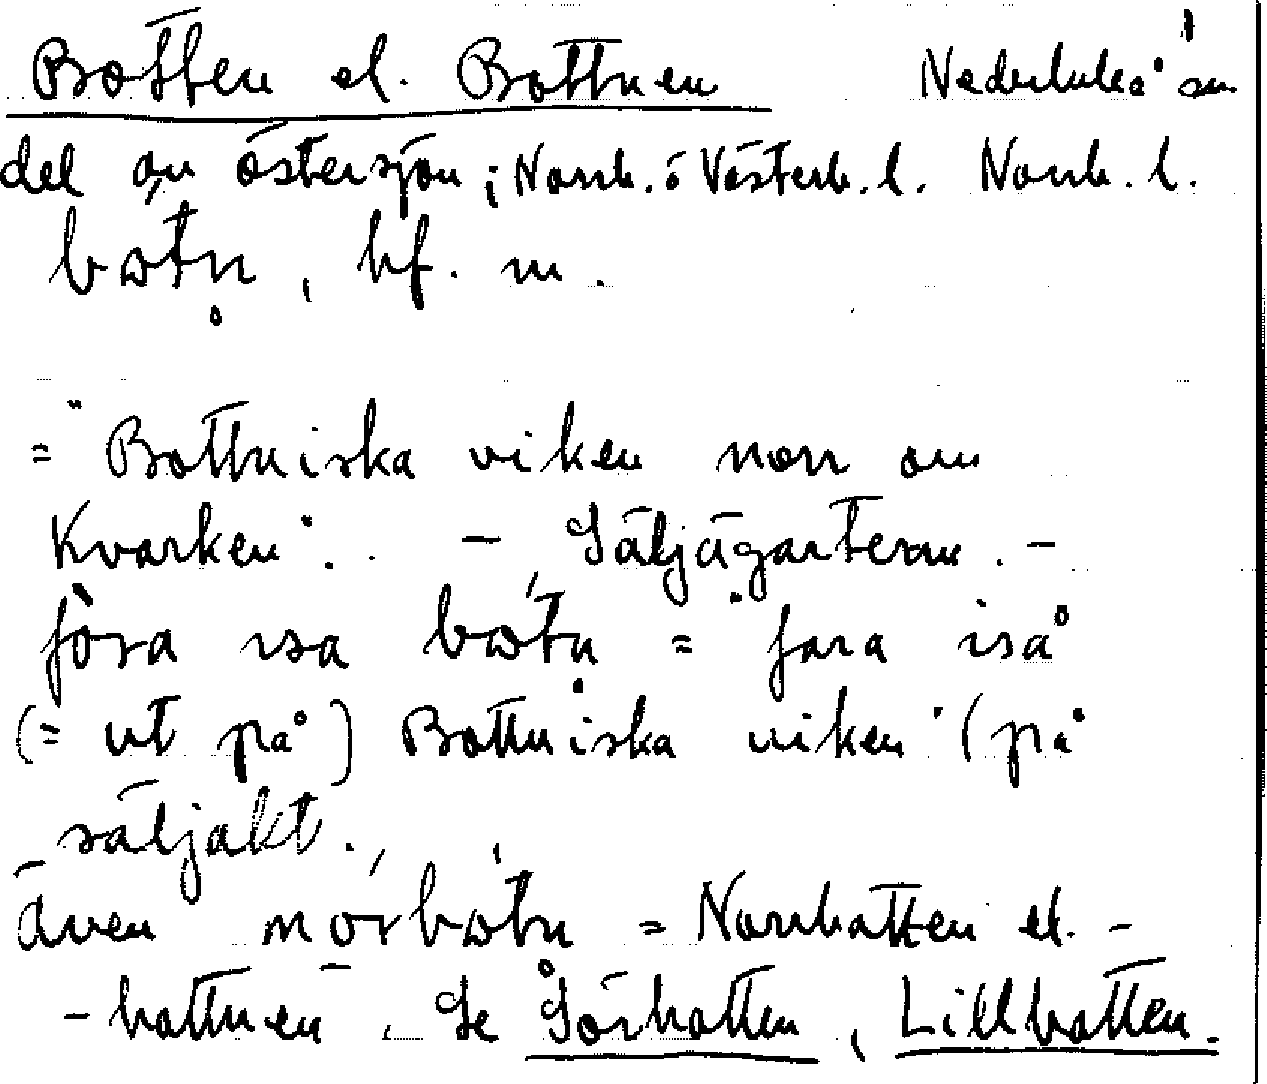 Botten el. Bottnen Nederluleå sn
del av östersjön; Norrb. o Västerb. l. Norrb. l.
bɷtn̥, bf. m.
= "Bottniska viken norr om
Kvarken". - Säljägarterm. -
fòra isa bɷtn̥ = fara iså
(= ut på) Bottniska viken (på
säljakt.
även nórbɷtn̥ = Norrbotten el. -
-bottnen. Se Sörbotten, Lillbotten.